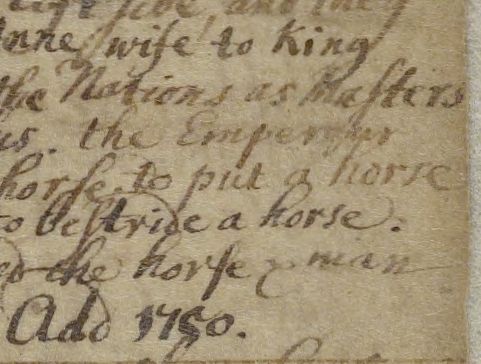 and they
Anne wife to King
the Nations as Maſters
us. the Emperour
horſe. to put a horse
to beſtride a horse.
the horſe & man
Add 1750.